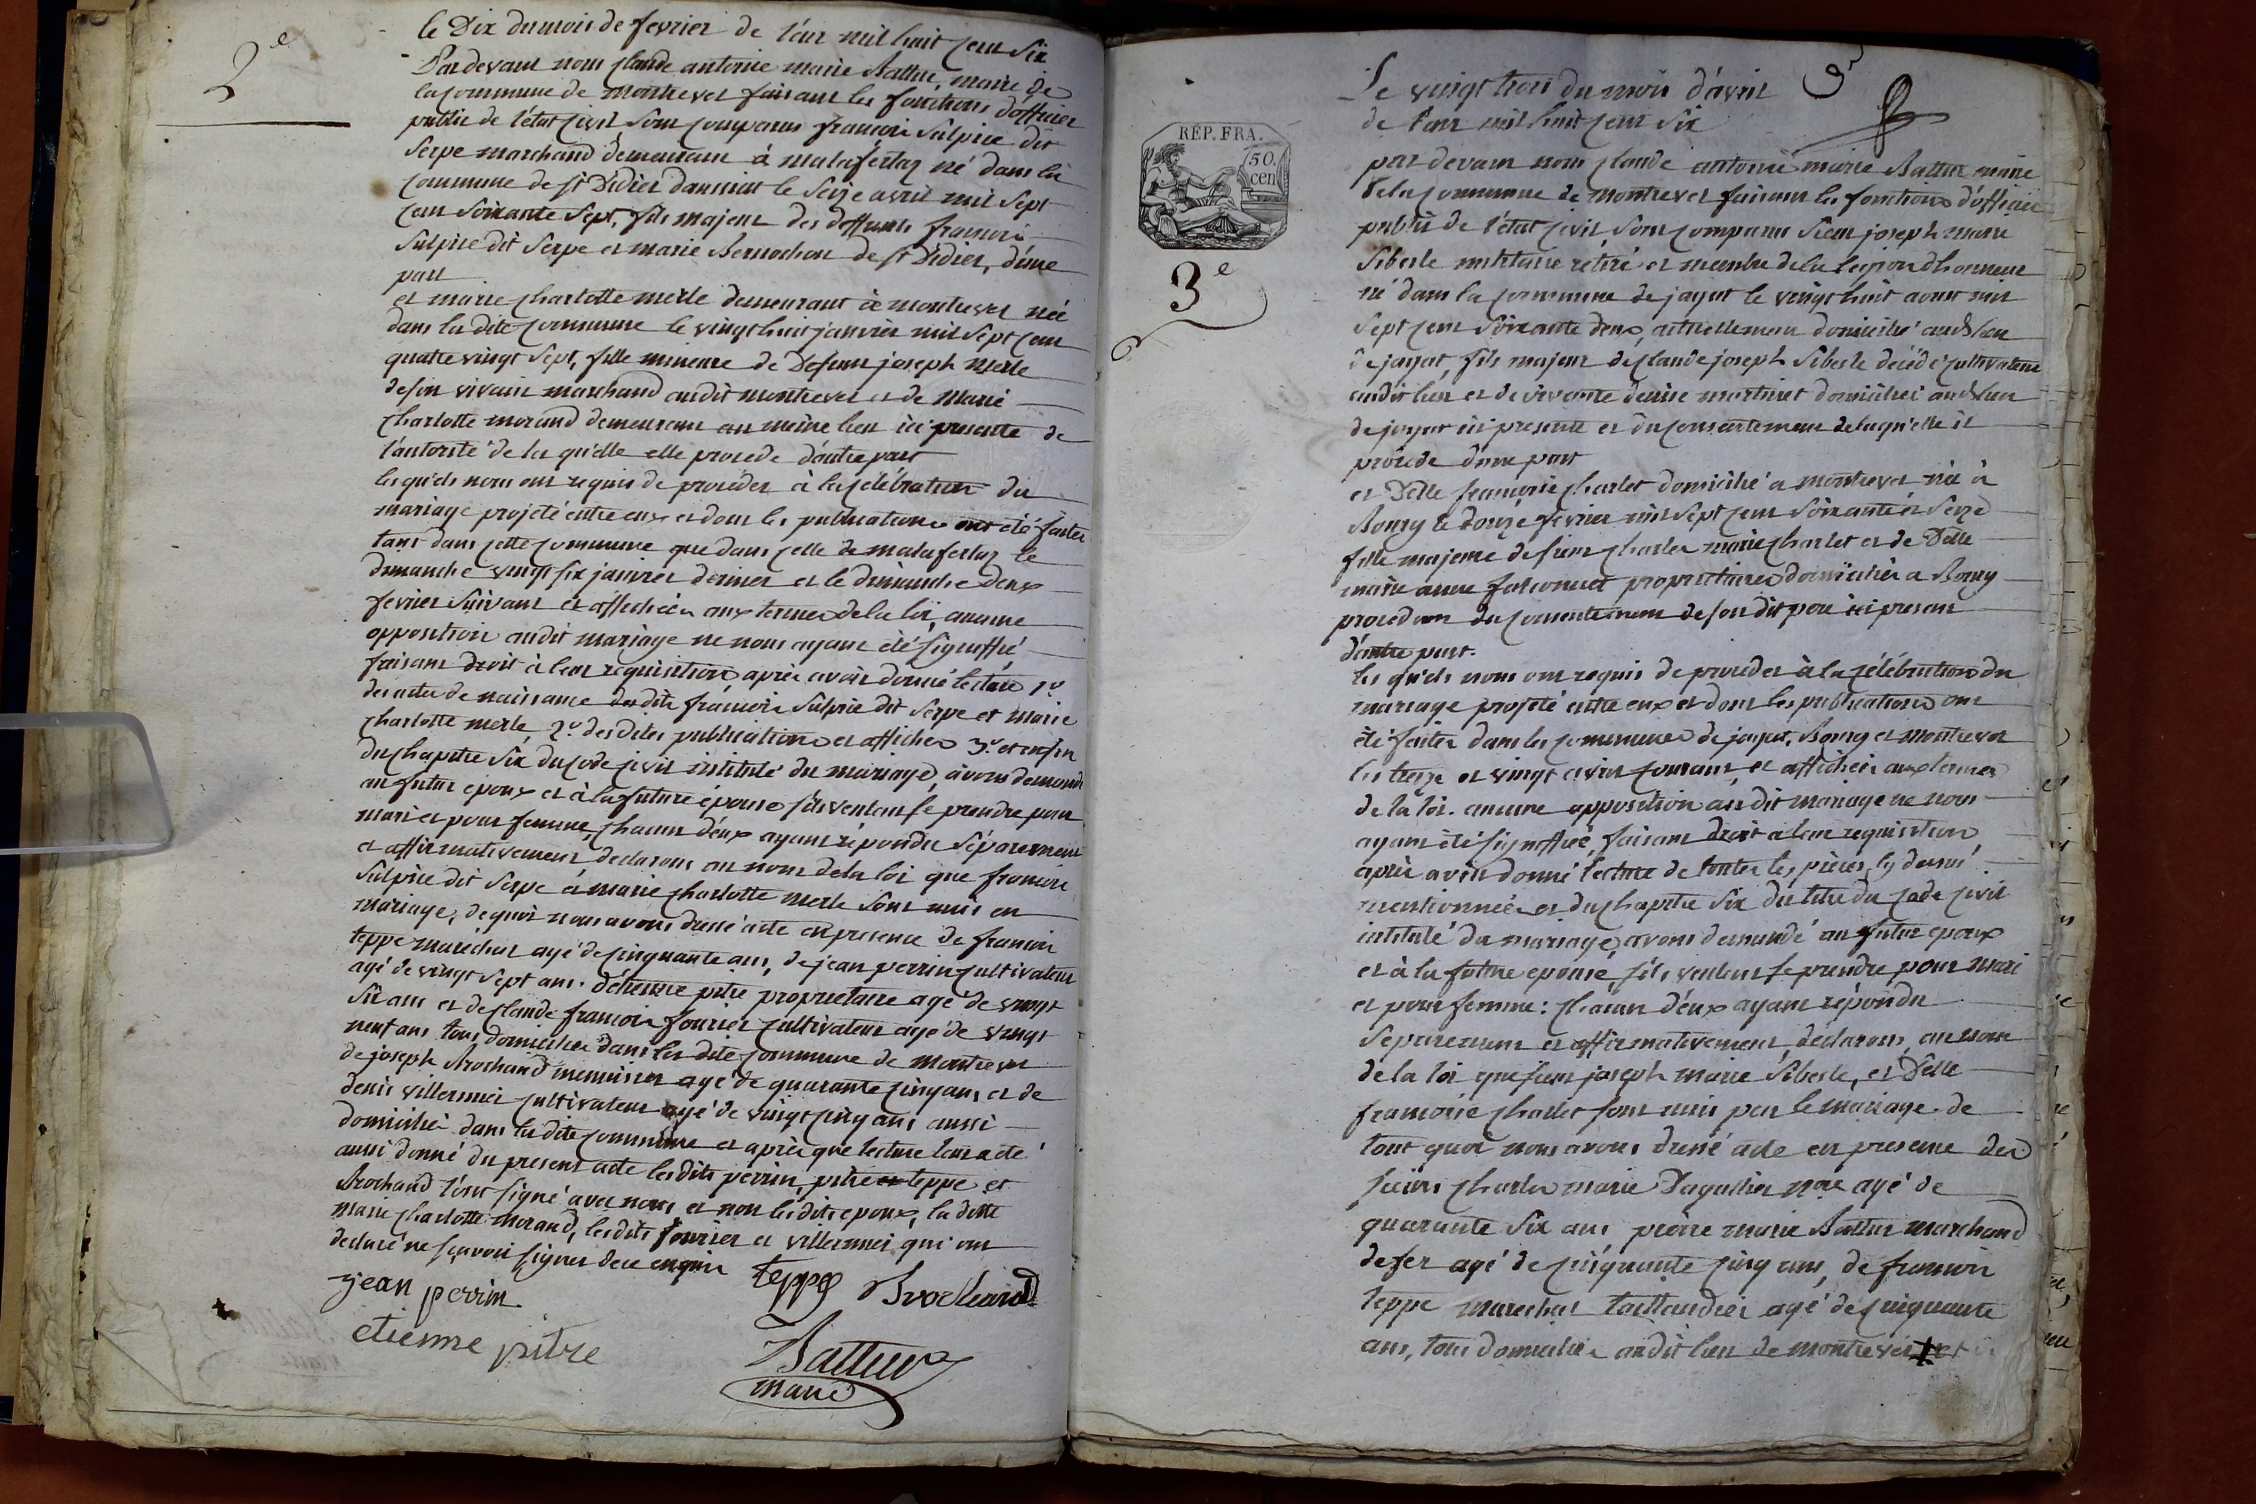 2e
le Dix du mois de fevrier de l'an mil huit cent six
Par devant nous claude antoine marie Battur, maire de
la commune de montrevel faisant les fonctions d'officier
public de l'état civil, sont comparus francois Sulpice dit
Serpe marchand demeurant à malafertaz né dans la
commune de st Didier daussiat le seize avril mil sept
cent soixante sept, fils majeur des deffunts francois
Sulpice dit Serpe et marie Bernochon de st Didier, d'une
part
et marie charlotte merle demeurant à montrevel née
dans la dite commune le vingt huit janvier mil sept cent
quatre vingt sept, fille mineure de Defunt joseph merle
de son vivant marchand audit montrevel et de Marie
charlotte morand demeurant au même lieu ici presente de
l'autorité de la qu'elle elle procede d'autre part
les qu'els nous ont requis de procéder à la célébration du
mariage projeté entre eux et dont les publications ont été faites
tant dans cette commune que dans celle de malafertaz le
dimanche vingt six janvier dernier et le dimanche deux
fevrier suivant et affichées aux termes de la loi, aucune
opposition audit mariage ne nous ayant été signiffié,
faisant droit à leur requisition, après avoir donné lecture 1°
des actes de naissance des dits francois Sulpice dit Serpe et marie
charlotte merle, 2° des dites publications et affiches 3° et enfin
du chapitre six du code civil intitulé du mariage, avons demandé
au futur epoux et à la future épouse s'ils veulent se prendre pour
mari et pour femme, chacun d'eux ayant répondu séparement
et affirmativement declarons au nom de la loi que francois
Sulpice dit Serpe et marie charlotte merle sont unis en
mariage, de quoi nous avons dressé acte en presence de francois
teppe maréchal agé de cinquante ans, de jean perrin cultivateur
agé de vingt sept ans. d'étienne pitre proprietaire agé de vingt
six ans et de claude francois fourier cultivateur agé de vingt
neuf ans tous domiciliés dans la dite commune de montrevel
de joseph Brochand menuisier agé de quarante cinq ans et de
denis villermier cultivateur agé de vingt cinq ans aussi
domicilié dans la dite commune et après que lecture leur a eté
aussi donné du present acte lesdits perrin, pitre et teppe et
Brochand l'ont signé avec nous et non lesdits epoux, la ditte
marie charlotte morand, lesdits fourier et villermier qui ont
declaré ne sçavoir signer de ce enquis
jean perrin teppe Brochand
etienne pitre Battur
maire
Le vingt trois du mois d'avril
de l'an mil huit cent six
RÉP. FRA.
50.
cen
3e
par devant nous claude antoine marie Battur maire
de la commune de montrevel faisant les fonctions d'officier
public de l'état civil sont comparus Sieur joseph marie
Siberle militaire retiré et membre de la légion d'honneur
né dans la commune de jayat le vingt huit aoust mil
sept cent soixante deux, actuellement domicilié aud. lieu
de jayat, fils majeur de claude joseph Siberle décédé cultivateur
audit lieu et de vivante denise martinet domiciliée aud. lieu
de jayat ici presente et du consentement de laqu'elle il
procede d'une part
et Delle francoise charlet domicilié a montrevel née à
Bourg le douze fevrier mil sept cent soixante et seize
fille majeure de sieur charles marie charlet et de Delle
marie anne falconnet proprietaires domiciliés a Bourg
procedant du consentement de son dit père ici present
d'autre part.
les qu'els nous ont requis de proceder à la célébration du
mariage projeté entre eux et dont les publications ont
été faites dans les communes de jayat, Bourg et montrevel
les treize et vingt avril courant, et affichées aux termes
de la loi. aucune opposition au dit mariage ne nous
ayant été signiffiée, faisant droit a leur requisition
après avoir donné lecture de toutes les pièces cy dessus
mentionnées et du chapitre six du titre du code civil
intitulé du mariage, avons demandé au futur epoux
et à la future epouse, s'ils veulent se prendre pour mari
et pour femme: chacun d'eux ayant répondu
separement et affirmativement, declarons, au nom
de la loi que sieur joseph marie Siberle, et Delle
francoise charlet sont unis par le mariage. de
tout quoi nous avons dressé acte en presence des
sieurs charles marie Dagallier nore agé de
quarante six ans pierre marie Battur marchand
de fer agé de cinquante cinq ans, de francois
teppe marechal taillandier agé de cinquante
ans, tous domiciliés audit lieu de montrevel